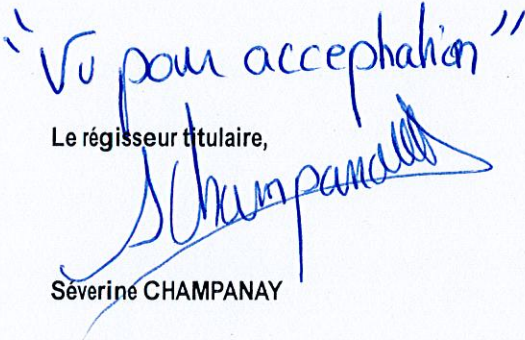 "Vu pour acceptation"
Le régisseur titulaire,
SChampanay
Séverine CHAMPANAY